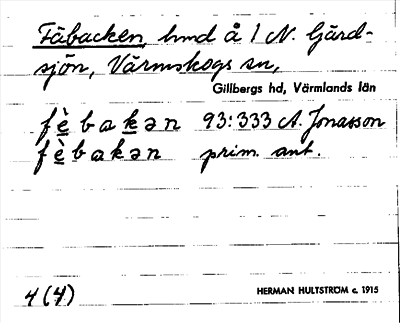 Fäbacken, hmd å 1 N. Gärd-
sjön, Värmskogs sn,
Gillbergs hd, Värmlands län
fè̱baḵən 93:333 A. Jonasson
fè̱bakən prim. ant.
4 (4)
HERMAN HULTSTRÖM c. 1915